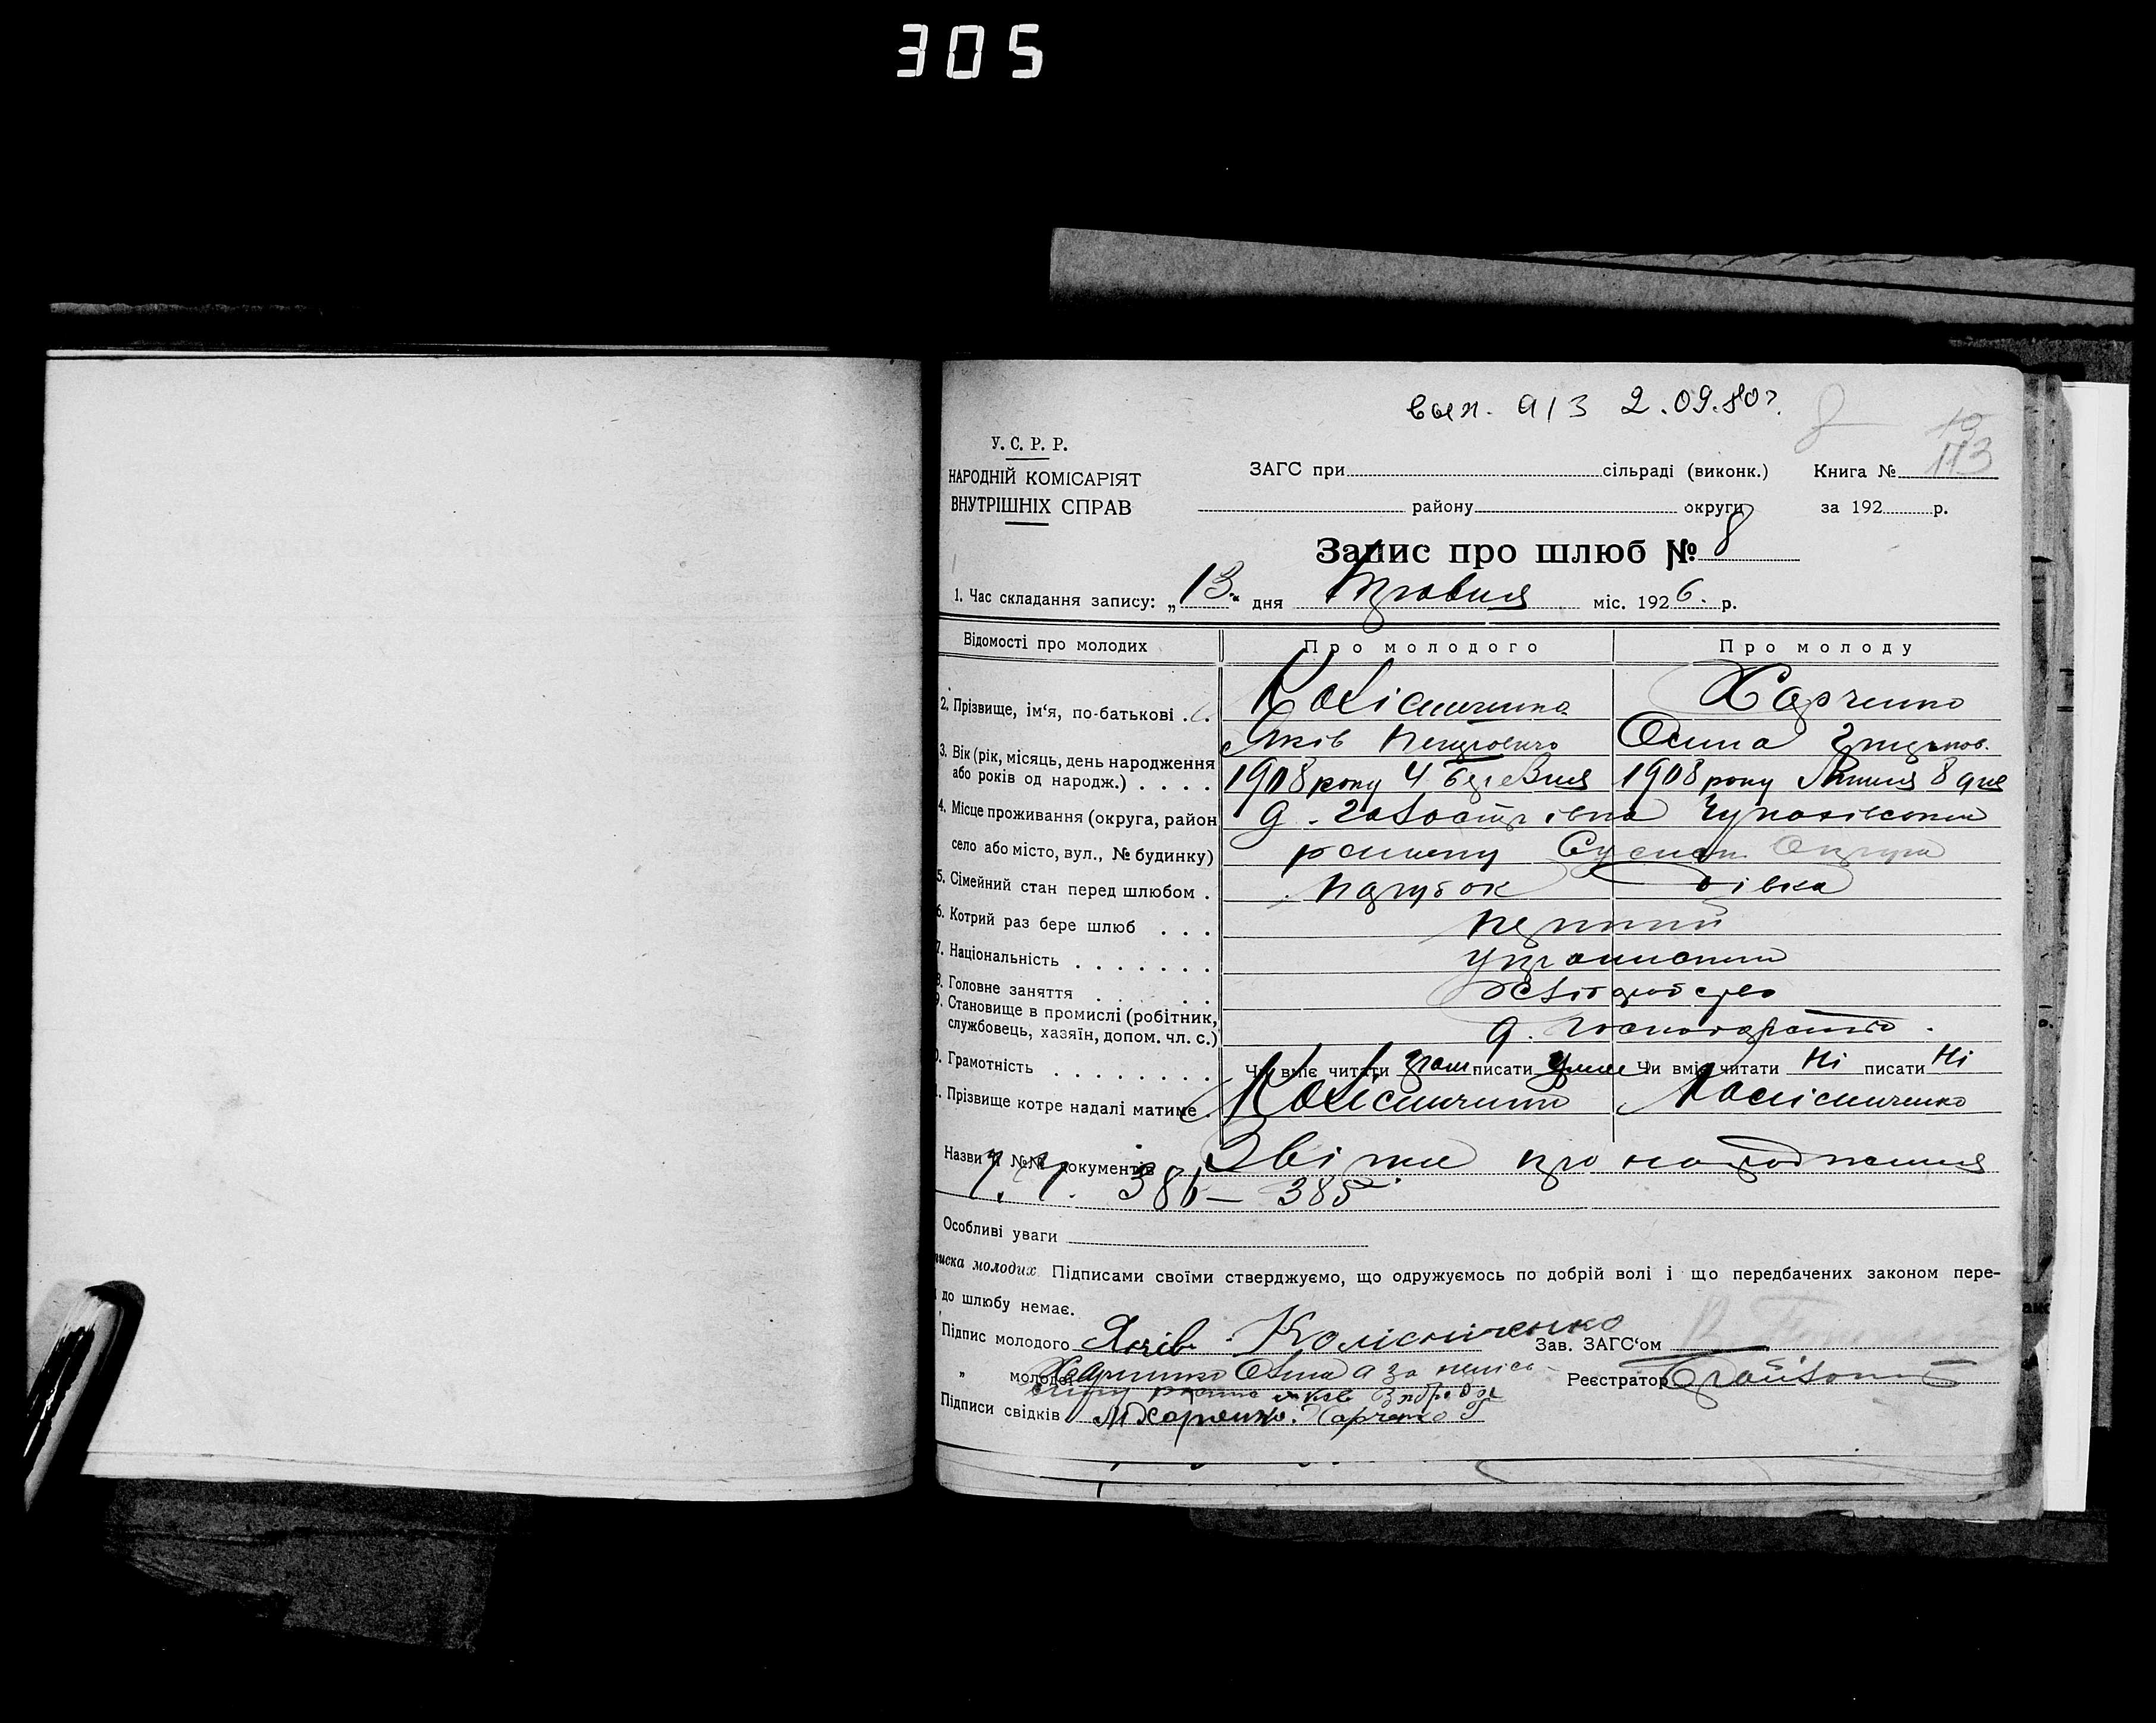 305
вып. а/з 2.09.80г.
8
10
113
У.С.Р.Р.
НАРОДНІЙ КОМІСАРІЯТ
ВНУТРІШНІХ СПРАВ
ЗАГС при сільраді (виконк.) Книга №
району округи за 192 р.
Запис про шлюб № 8
1. Час складання запису: „13“ дня травня міс. 1926. р.
Відомості про молодих Про молодого Про молоду
2. Прізвище, ім‘я, по-батькові . . Колісниченко Харченко
Яків Петрович Олина
3. Вік (рік, місяць, день народження 1908 року 4 березня 1908 року Липня 8 дня
або років од народж.) . . . .
4. Місце проживання (округа, район д.
село або місто, вул., № будинку) району Сумськ. Округи
5. Сімейний стан перед шлюбом . парубок дівка
6. Котрий раз бере шлюб . . . перший
7. Національність . . . . . . . українській
8. Головне заняття . . . . . хліборобство
9. Становище в промислі (робітник,
службовець, хазяїн, допом. чл. с.) д. господарстві.
0. Грамотність . . . . . . . . Чи вміє читати писати уміє Чи вміє читати Ні писати Ні
1. Прізвище котре надалі матиме . Колісниченко Колісниченко
Назви й №№ документів про народження
ч.ч. 386 – 385
Особливі уваги
писка молодих. Підписами своїми стверджуємо, що одружуємось по добрій волі і що передбачених законом пере-
до шлюбу немає.
Підпис молодого Яків Колісниченко Зав. ЗАГС‘ом
„ молодої Харченко Олина а за неписьм Реєстратор
Підписи свідків М Харченко. Харченко Г